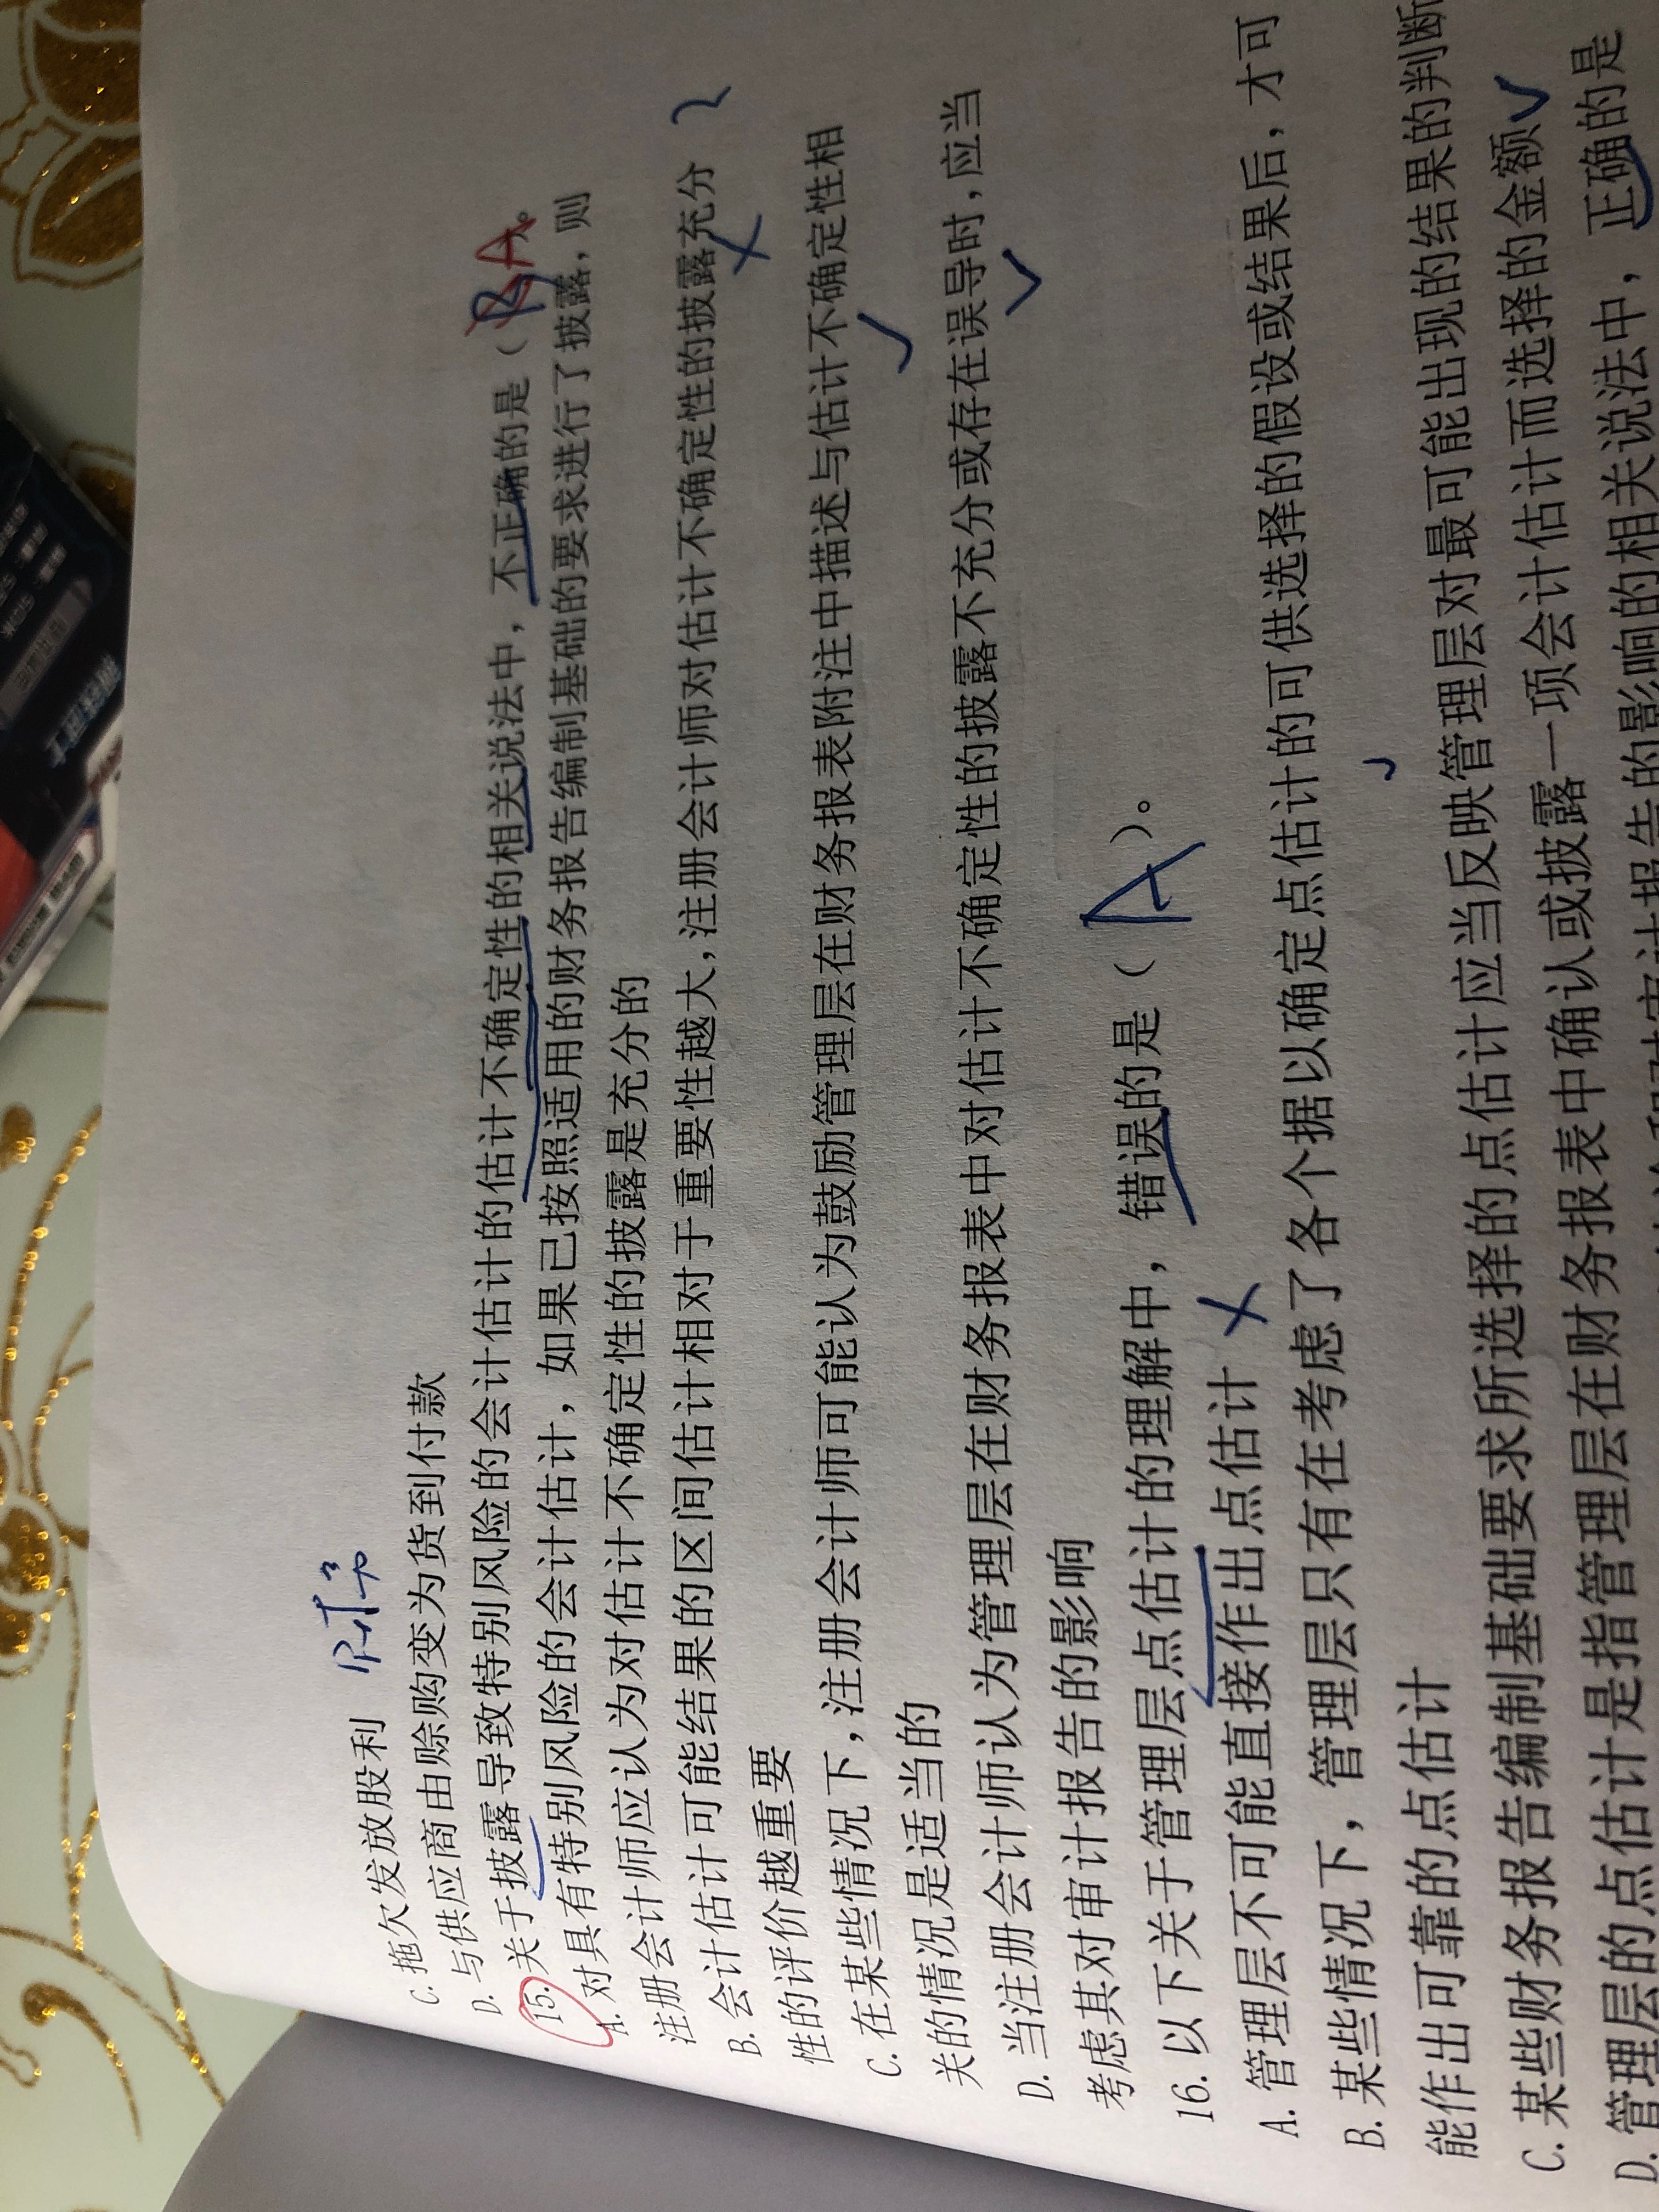 C. 拖欠发放股利
D. 与供应商由赊购变为货到付款
15. 关于披露导致特别风险的会计估计的估计不确定性的相关说法中，不正确的是（ B A ）。
A. 对具有特别风险的会计估计，如果已按照适用的财务报告编制基础的要求进行了披露，则
注册会计师应认为对估计不确定性的披露是充分的
B. 会计估计可能结果的区间估计相对于重要性越大，注册会计师对估计不确定性的披露充分
性的评价越重要
C. 在某些情况下，注册会计师可能认为鼓励管理层在财务报表附注中描述与估计不确定性相
关的情况是适当的
D. 当注册会计师认为管理层在财务报表中对估计不确定性的披露不充分或存在误导时，应当
考虑其对审计报告的影响
16. 以下关于管理层点估计的理解中，错误的是（ A ）。
A. 管理层不可能直接作出点估计
B. 某些情况下，管理层只有在考虑了各个据以确定点估计的可供选择的假设或结果后，才可
能作出可靠的点估计
C. 某些财务报告编制基础要求所选择的点估计应当反映管理层对最可能出现的结果的判断
D. 管理层的点估计是指管理层在财务报表中确认或披露一项会计估计而选择的金额
审计报告的影响的相关说法中，正确的是